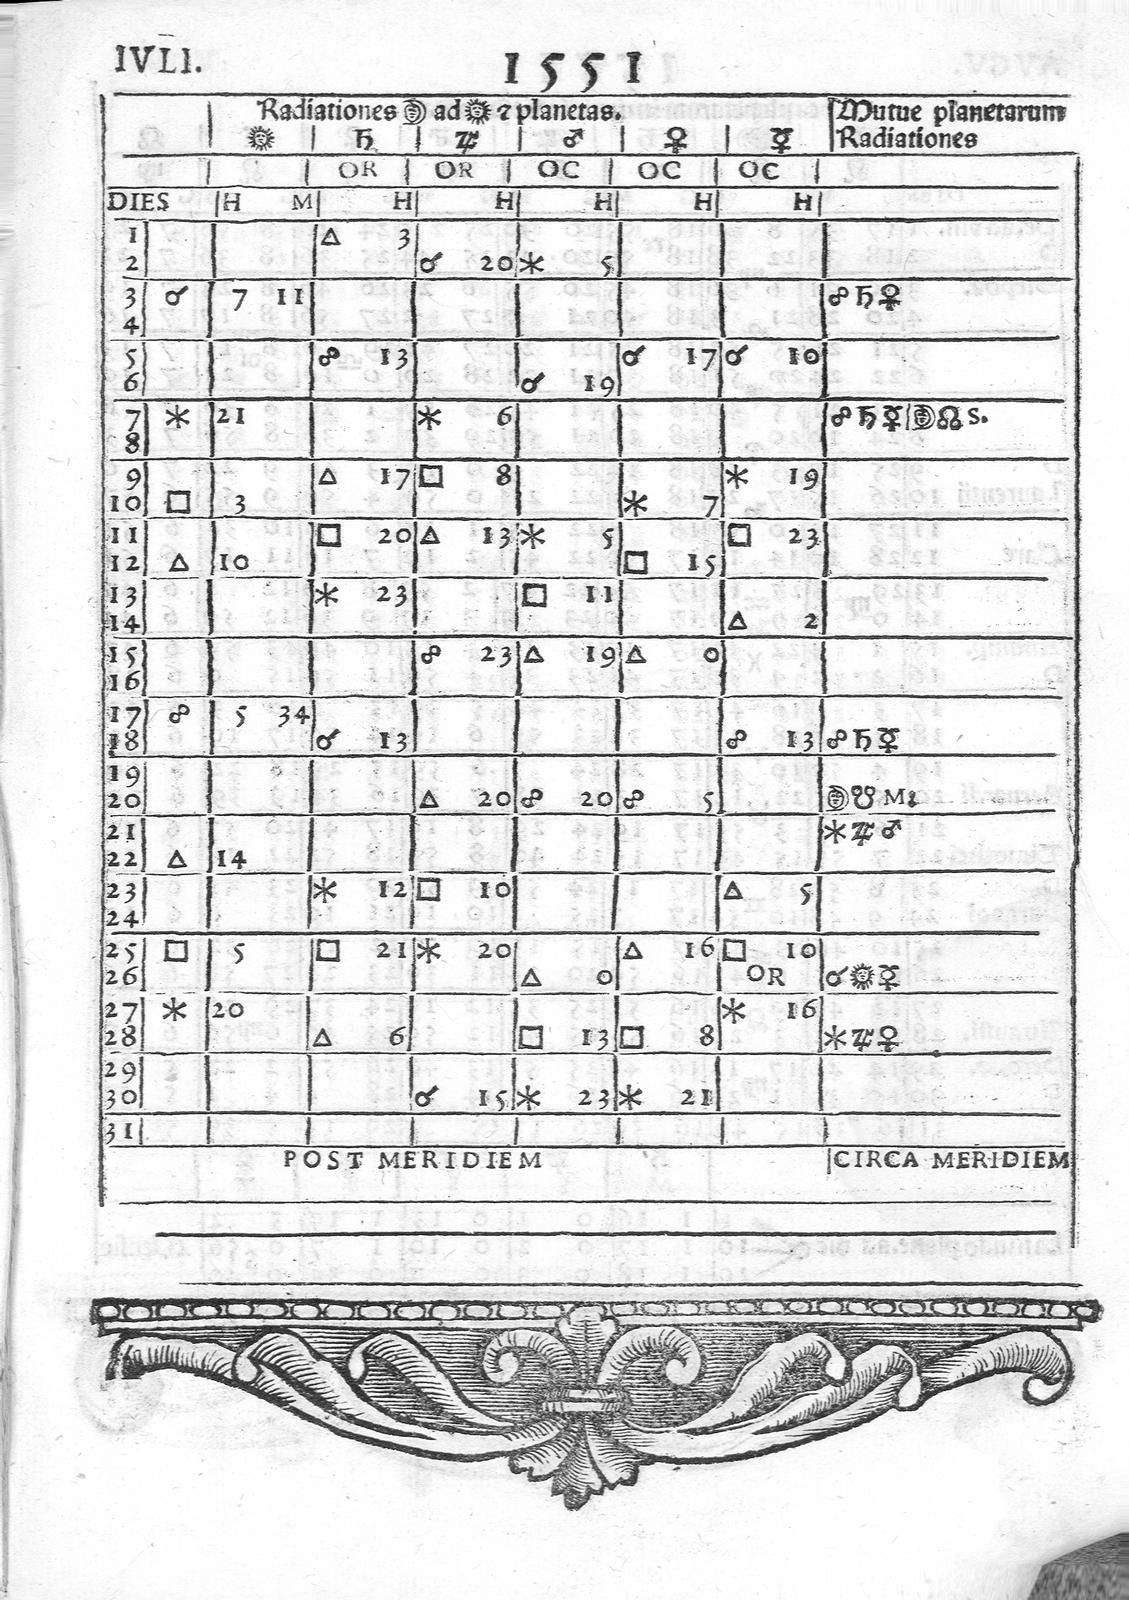 IVLI. 1551
Radiationes ☽ ad ☉ ⁊ planetas. Mutue planetarum
☉ ♄ ♃ ♂ ♀ ☿ Radiationes
OR OR OC OC OC
DIES H M H H H H H
1 △ 3
2 ☌ 20 ⚹ 5
3 ☌ 7 11 ☍ ♄ ♀
4
5 ☍ 13 ☌ 17 ☌ 10
6 ☌ 19
7 ⚹ 21 ⚹ 6 ☍ ♄ ☿ | ☽ ☊ S.
8
9 △ 17 □ 8 ⚹ 19
10 □ 3 ⚹ 7
11 □ 20 △ 13 ⚹ 5 □ 23
12 △ 10 □ 15
13 ⚹ 23 □ 11
14 △ 2
15 ☍ 23 △ 19 △ 0
16
17 ☍ 5 34
18 ☌ 13 ☍ 13 ☍ ♄ ☿
19
20 △ 20 ☍ 20 ☍ 5 ☽ ☋ M
21 ⚹ ♃ ♂
22 △ 14
23 ⚹ 12 □ 10 △ 5
24
25 □ 5 □ 21 ⚹ 20 △ 16 □ 10
26 △ 0 OR ☌ ☉ ☿
27 ⚹ 20 ⚹ 16
28 △ 6 □ 13 □ 8 ⚹ ♃ ♀
29
30 ☌ 15 ⚹ 23 ⚹ 21
31
POST MERIDIEM CIRCA MERIDIEM